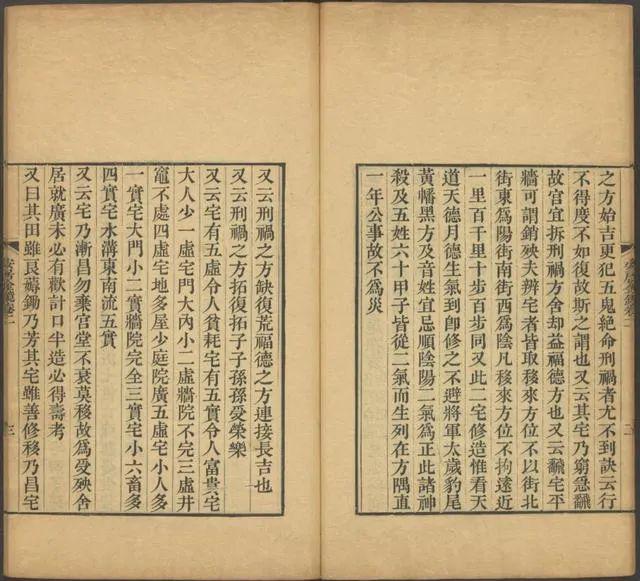 之方始吉更犯五鬼絶命刑禍者尤不到訣云行
不得度不如復故斯之謂也又云其宅乃窮急翻
故宮宜拆刑禍方舍却益福德方也又云翻宅平
牆可謂銷殃夫辨宅者皆取移來方位不以街北
街東爲陽街南街西爲陰凡移來方位不拘遠近
一里百千里十步百步同又此二宅修造惟看天
道天德月德生氣到卽修之不避將軍太歲豹尾
黃幡黑方及音姓宜忌順陰陽二氣爲正此諸神
殺及五姓六十甲子皆從二氣而生列在方隅直
一年公事故不爲災
又云刑禍之方缺復荒福德之方連接長吉也
又云刑禍之方拓復拓子子孫孫受榮樂
又云宅有五虛令人貧耗宅有五實令人富貴宅
大人少一虛宅門大內小二虛牆院不完三虛井
竈不處四虛宅地多屋少庭院廣五虛宅小人多
一實宅大門小二實牆院完全三實宅小六畜多
四實宅水溝東南流五實
又云宅乃漸昌勿棄宮堂不衰莫移故爲受殃舍
居就廣未必有歡計口半造必得壽考
又曰其田雖良薅鋤乃芳其宅雖善修移乃昌宅
三